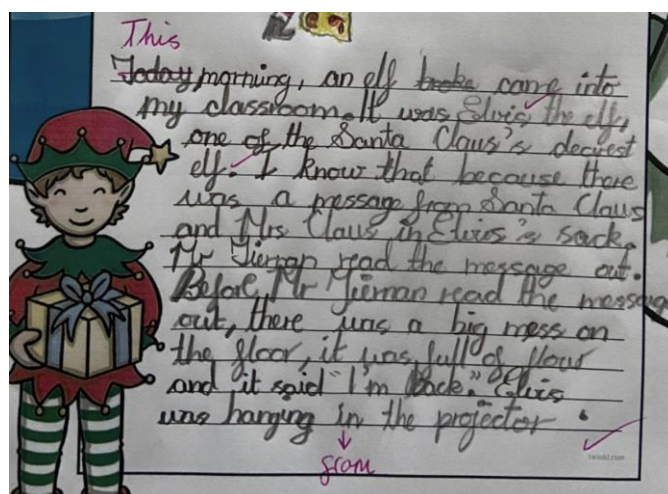 This
Today morning, an elf broke came into
my classroom. It was Elvis the elf,
one of the Santa Claus's dearest
elf. I know that because there
was a message from Santa Claus
and Mrs Claus in Elvis's sack.
Mr Tiernan read the message out.
Before Mr Tiernan read the message
out, there was a big mess on
the floor, it was full of flour
and it said "I'm back." Elvis
was hanging in the projector.
from
twinkl.com